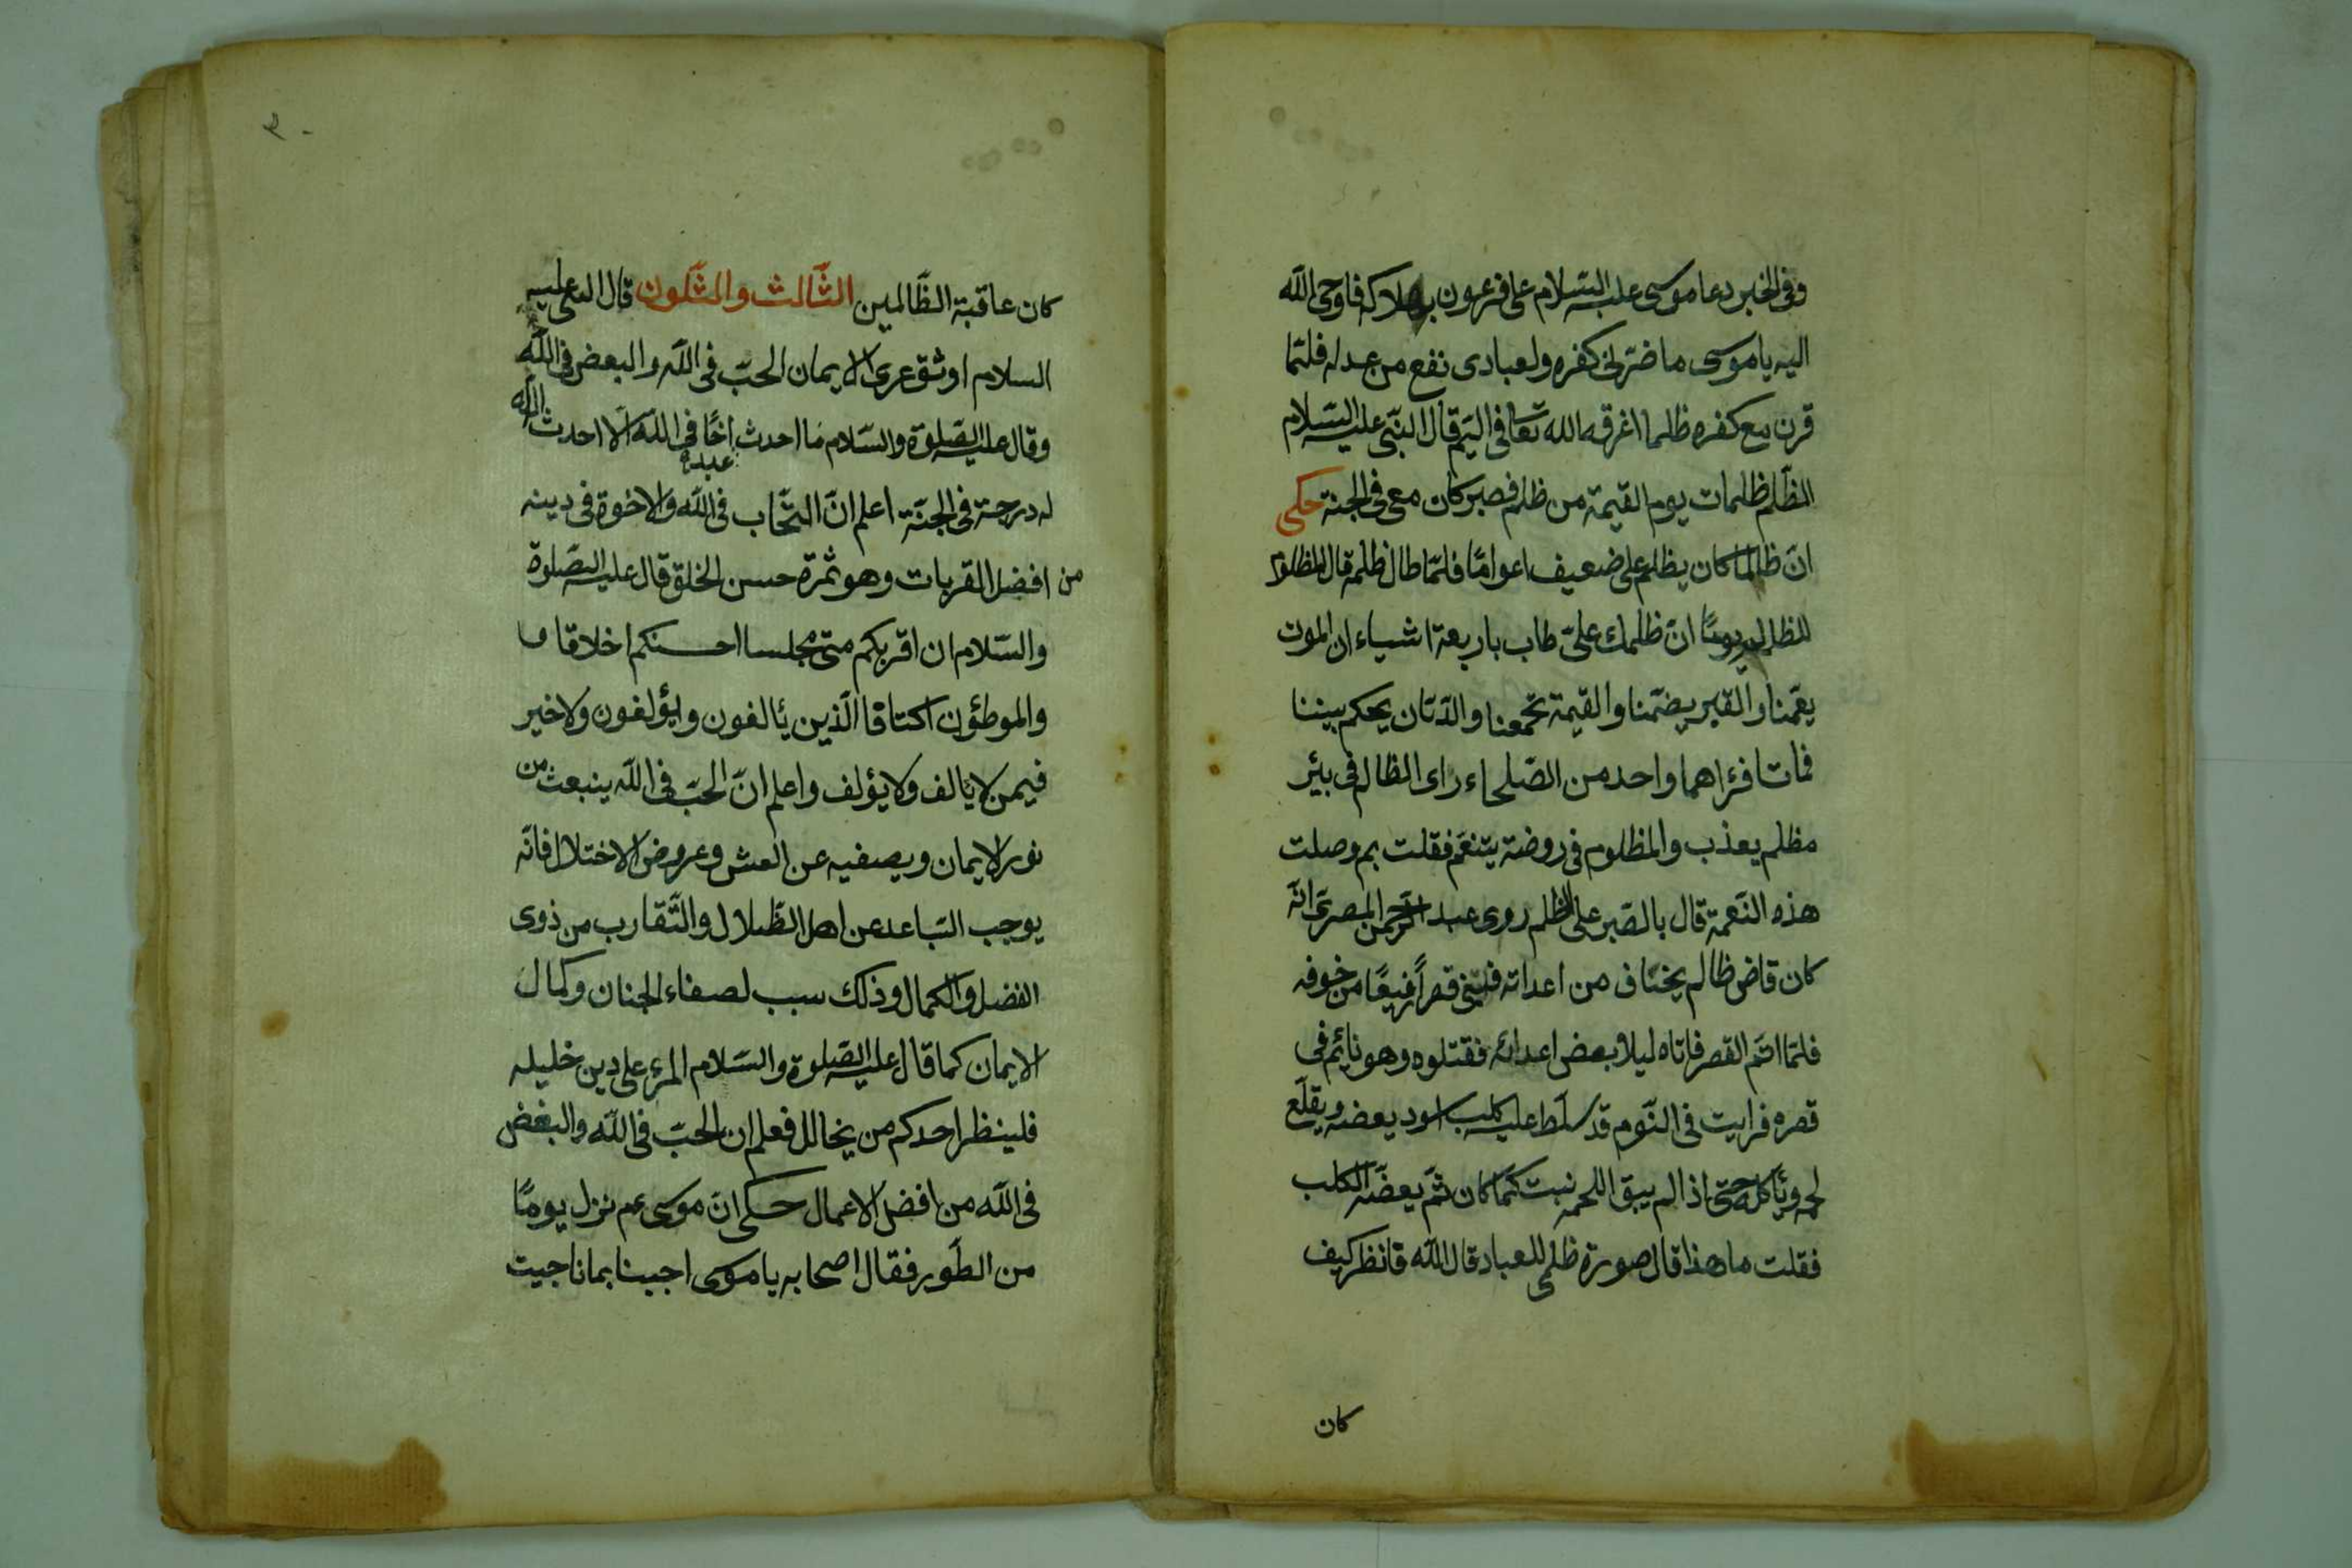 وفى الخبر دعا موسى عليه السّلام على فرعون بهلاكه فاوحى الله
اليه يا موسى ما ضرّنى كفره ولعبادى نفع من عدله فلمّا
قرن مع كفره ظلما اغرقه الله تعا فى اليمّ قال النّبى عليه السّلام
الظّلم ظلمات يوم القيمة من ظلم فصبر كان معى فى الجنة حكى
انّ ظالما كان يظلم على ضعيف اعوامًا فلمّا طال ظلمه قال المظلوم
للظالم يومًا انّ ظلمك علىّ طاب باربعة اشياء ان الموت
يعمّنا والقبر يضمّنا والقيمة تجمعنا والدّيّان يحكم بيننا
فماتا فرءاهما واحد من الصّلحاء راى الظالم فى بئر
مظلم يعذب والمظلوم فى روضة يتنعّم فقلت بم وصلت
هذه النّعمة قال بالصّبر على الظلم روى عبد الرّحمن المصرىّ انّه
كان قاض ظالم يخاف من اعدائه فبنى قصرًا رفيعًا من خوفه
فلمّا اتمّ القصر فاتاه ليلا بعض اعدائه فقتلوه وهو نائم فى
قصره فرايت فى النّوم قد سلّط عليه كلب اسود يعضه ويقلع
لحمه ويأكله حتى اذا لم يبق اللحم نبت كما كان ثمّ يعضّه الكلب
فقلت ما هذا قال صورة ظلمى للعباد قال الله فانظر كيف
كان
٣٠
كان عاقبة الظّالمين الثّالث والثّلثون قال النبى عليه
السلام اوثق عرى الايمان الحبّ فى الله والبعض فى الله
وقال عليه الصّلوة والسّلام ما احدث عبده اخًا فى الله الّا احدث الله
له درجة فى الجنّة اعلم انّ التحّاب فى الله والاخوة فى دينه
من افضل القربات وهو ثمرة حسن الخلق قال عليه الصّلوة
والسّلام ان اقربكم منّى مجلسا احسنكم اخلاقا
والموطؤن اكنافا الّذين يألفون ويؤلفون ولا خير
فيمن لا يألف ولا يؤلف واعلم انّ الحبّ فى الله ينبعث من
نور الايمان ويصفيه عن الغش وعروض الاختلال فانّه
يوجب التباعد عن اهل الظّلال والتّقارب من ذوى
الفضل والكمال وذلك سبب لصفاء الجنان وكمال
الايمان كما قال عليه الصّلوة والسّلام المرء على دين خليله
فلينظر احدكم من يخالل فعلم ان الحبّ فى الله والبغض
فى الله من افضل الاعمال حكى انّ موسى عم نزل يومًا
من الطّور فقال اصحابه يا موسى اجبنا بما ناجيت